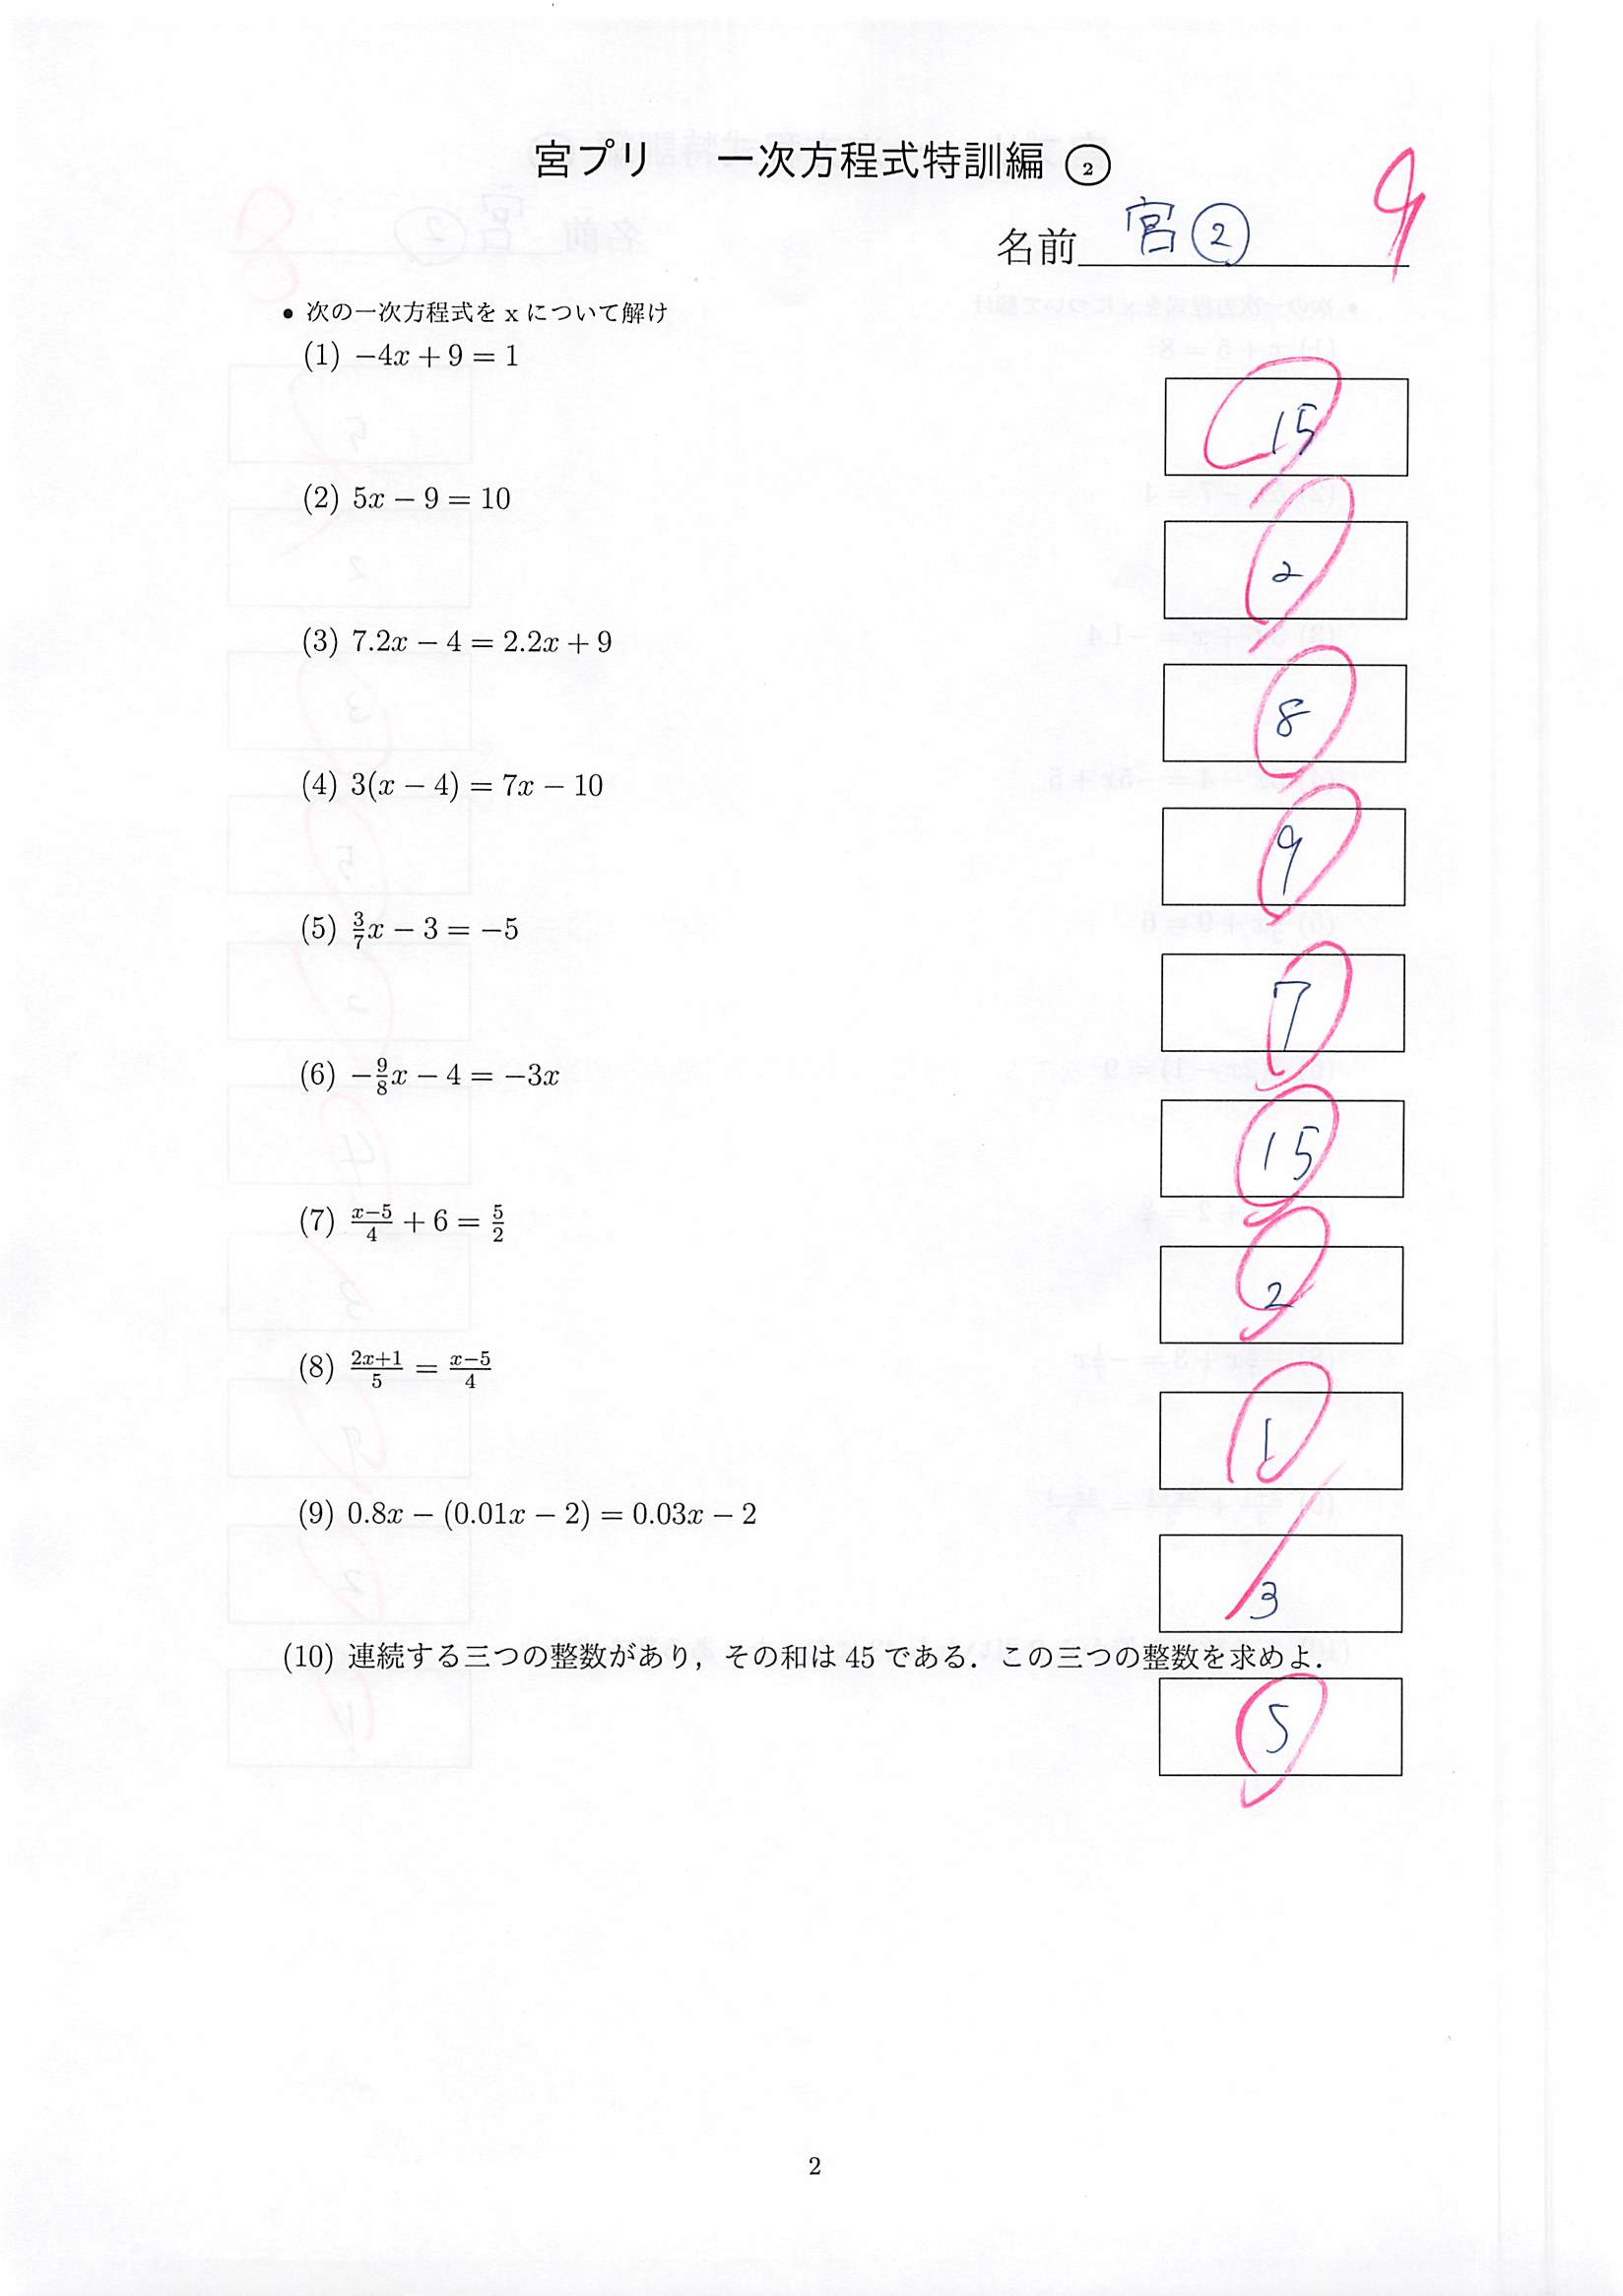 宮プリ 一次方程式特訓編 ②
名前 宮② 9
• 次の一次方程式を x について解け
(1) −4x + 9 = 1
15
(2) 5x − 9 = 10
2
(3) 7.2x − 4 = 2.2x + 9
8
(4) 3(x − 4) = 7x − 10
9
(5) 3/7 x − 3 = −5
7
(6) −9/8 x − 4 = −3x
15
(7) (x−5)/4 + 6 = 5/2
2
(8) (2x+1)/5 = (x−5)/4
1
(9) 0.8x − (0.01x − 2) = 0.03x − 2
3
(10) 連続する三つの整数があり，その和は 45 である．この三つの整数を求めよ．
5
2